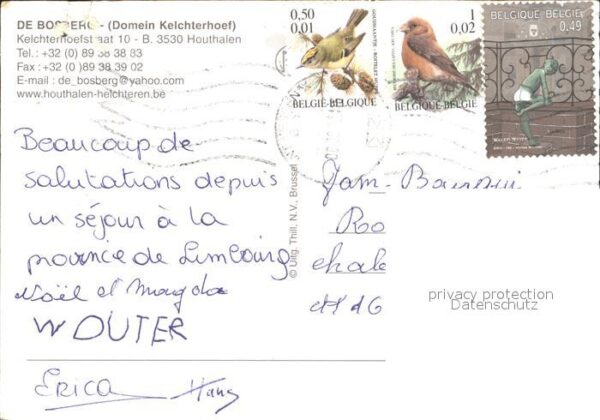 DE BOSBERG - (Domein Kelchterhoef)
Kelchterhoefstraat 10 - B. 3530 Houthalen
Tel.: +32 (0) 89 38 38 83
Fax : +32 (0) 89 38 39 02
E-mail : de_bosberg@yahoo.com
www.houthalen-helchteren.be
0,50
0,01
BELGIE-BELGIQUE
1
0,02
BELGIE-BELGIQUE
BELGIQUE-BELGIË
0,49
Beaucoup de
salutations depuis
un séjour à la
province de Limbourg
Noël et Magda
WOUTER
Erica Hans
© Uitg. Thill, N.V., Brussel
Fam.
Ro
chale
privacy protection
Datenschutz